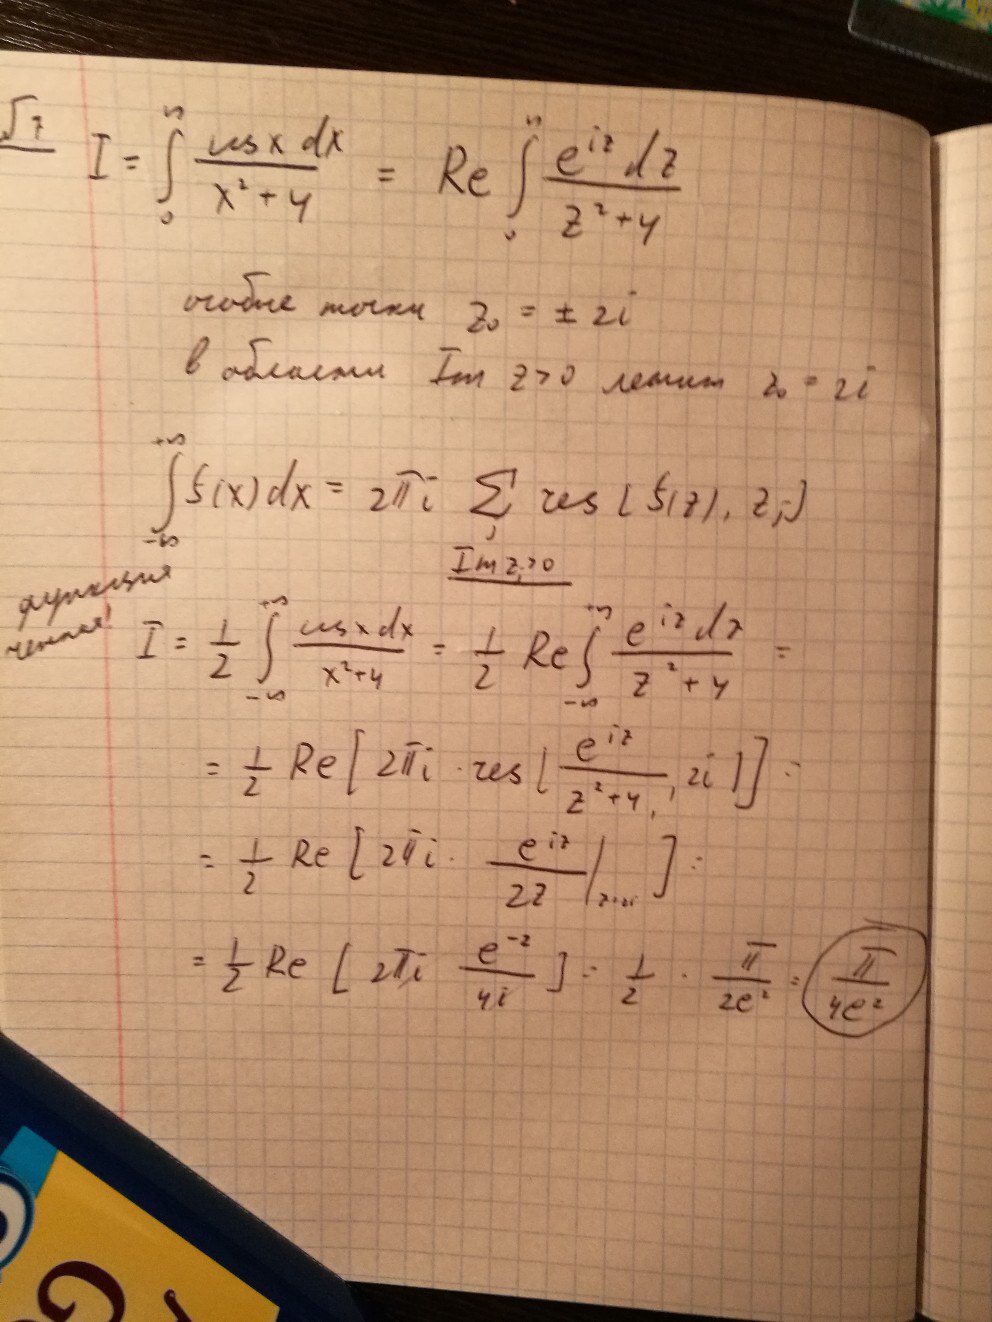 √7 I = ∫₀^∞ cos x dx / (x² + 4) = Re ∫₀^∞ e^{iz} dz / (z² + 4)
особые точки z₀ = ± 2i
в области Im z > 0 лежит z₀ = 2i
∫_{-∞}^{+∞} f(x) dx = 2πi Σ_j res [f(z), z_j]
Im z_j > 0
функция
четная!
I = 1/2 ∫_{-∞}^{+∞} cos x dx / (x² + 4) = 1/2 Re ∫_{-∞}^{+∞} e^{iz} dz / (z² + 4) =
= 1/2 Re [ 2πi · res [ e^{iz} / (z² + 4), 2i ] ] =
= 1/2 Re [ 2πi · e^{iz} / 2z |_{z=2i} ] =
= 1/2 Re [ 2πi e^{-2} / 4i ] = 1/2 · π / 2e² = π / 4e²
G